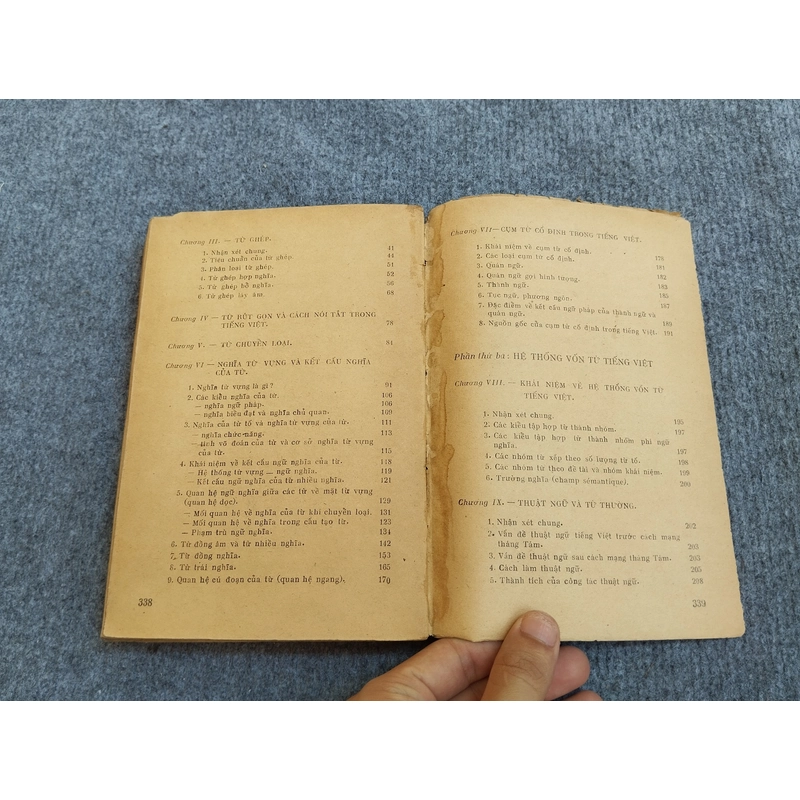 Chương III. — TỪ GHÉP.
1. Nhận xét chung. 41
2. Tiêu chuẩn của từ ghép. 44
3. Phân loại từ ghép. 51
4. Từ ghép hợp nghĩa. 52
5. Từ ghép bổ nghĩa. 56
6. Từ ghép láy âm. 68
Chương IV — TỪ RÚT GỌN VÀ CÁCH NÓI TẮT TRONG
TIẾNG VIỆT. 78
Chương V. — TỪ CHUYỂN LOẠI. 84
Chương VI — NGHĨA TỪ VỰNG VÀ KẾT CẤU NGHĨA
CỦA TỪ.
1. Nghĩa từ vựng là gì? 91
2. Các kiểu nghĩa của từ. 106
— nghĩa ngữ pháp. 106
— nghĩa biểu đạt và nghĩa chủ quan. 109
3. Nghĩa của từ tố và nghĩa từ vựng của từ. 111
— nghĩa chức năng. 113
— tính võ đoán của từ và cơ sở nghĩa từ vựng
của từ. 115
4. Khái niệm về kết cấu ngữ nghĩa của từ. 118
— Hệ thống từ vựng — ngữ nghĩa. 119
— Kết cấu ngữ nghĩa của từ nhiều nghĩa. 121
5. Quan hệ ngữ nghĩa giữa các từ về mặt từ vựng
(quan hệ dọc). 129
— Mối quan hệ về nghĩa của từ khi chuyển loại. 131
— Mối quan hệ về nghĩa trong cấu tạo từ. 132
— Phạm trù ngữ nghĩa. 134
6. Từ đồng âm và từ nhiều nghĩa. 142
7. Từ đồng nghĩa. 153
8. Từ trái nghĩa. 165
9. Quan hệ cú đoạn của từ (quan hệ ngang). 170
338
Chương VII — CỤM TỪ CỐ ĐỊNH TRONG TIẾNG VIỆT.
1. Khái niệm về cụm từ cố định. 176
2. Các loại cụm từ cố định. 181
3. Quán ngữ. 181
4. Quán ngữ gợi hình tượng. 182
5. Thành ngữ. 183
6. Tục ngữ, phương ngôn. 185
7. Đặc điểm về kết cấu ngữ pháp của thành ngữ và
quán ngữ. 187
8. Nguồn gốc của cụm từ cố định trong tiếng Việt. 191
Phần thứ ba: HỆ THỐNG VỐN TỪ TIẾNG VIỆT
Chương VIII. — KHÁI NIỆM VỀ HỆ THỐNG VỐN TỪ
TIẾNG VIỆT.
1. Nhận xét chung. 195
2. Các kiểu tập hợp từ thành nhóm. 197
3. Các kiểu tập hợp từ thành nhóm phi ngữ
nghĩa. 197
4. Các nhóm từ xếp theo số lượng từ tố. 198
5. Các nhóm từ theo đề tài và nhóm khái niệm. 199
6. Trường nghĩa (champ sémantique). 200
Chương IX. — THUẬT NGỮ VÀ TỪ THƯỜNG.
1. Nhận xét chung. 202
2. Vấn đề thuật ngữ tiếng Việt trước cách mạng
tháng Tám. 203
3. Vấn đề thuật ngữ sau cách mạng tháng Tám. 203
4. Cách làm thuật ngữ. 205
5. Thành tích của công tác thuật ngữ. 208
339